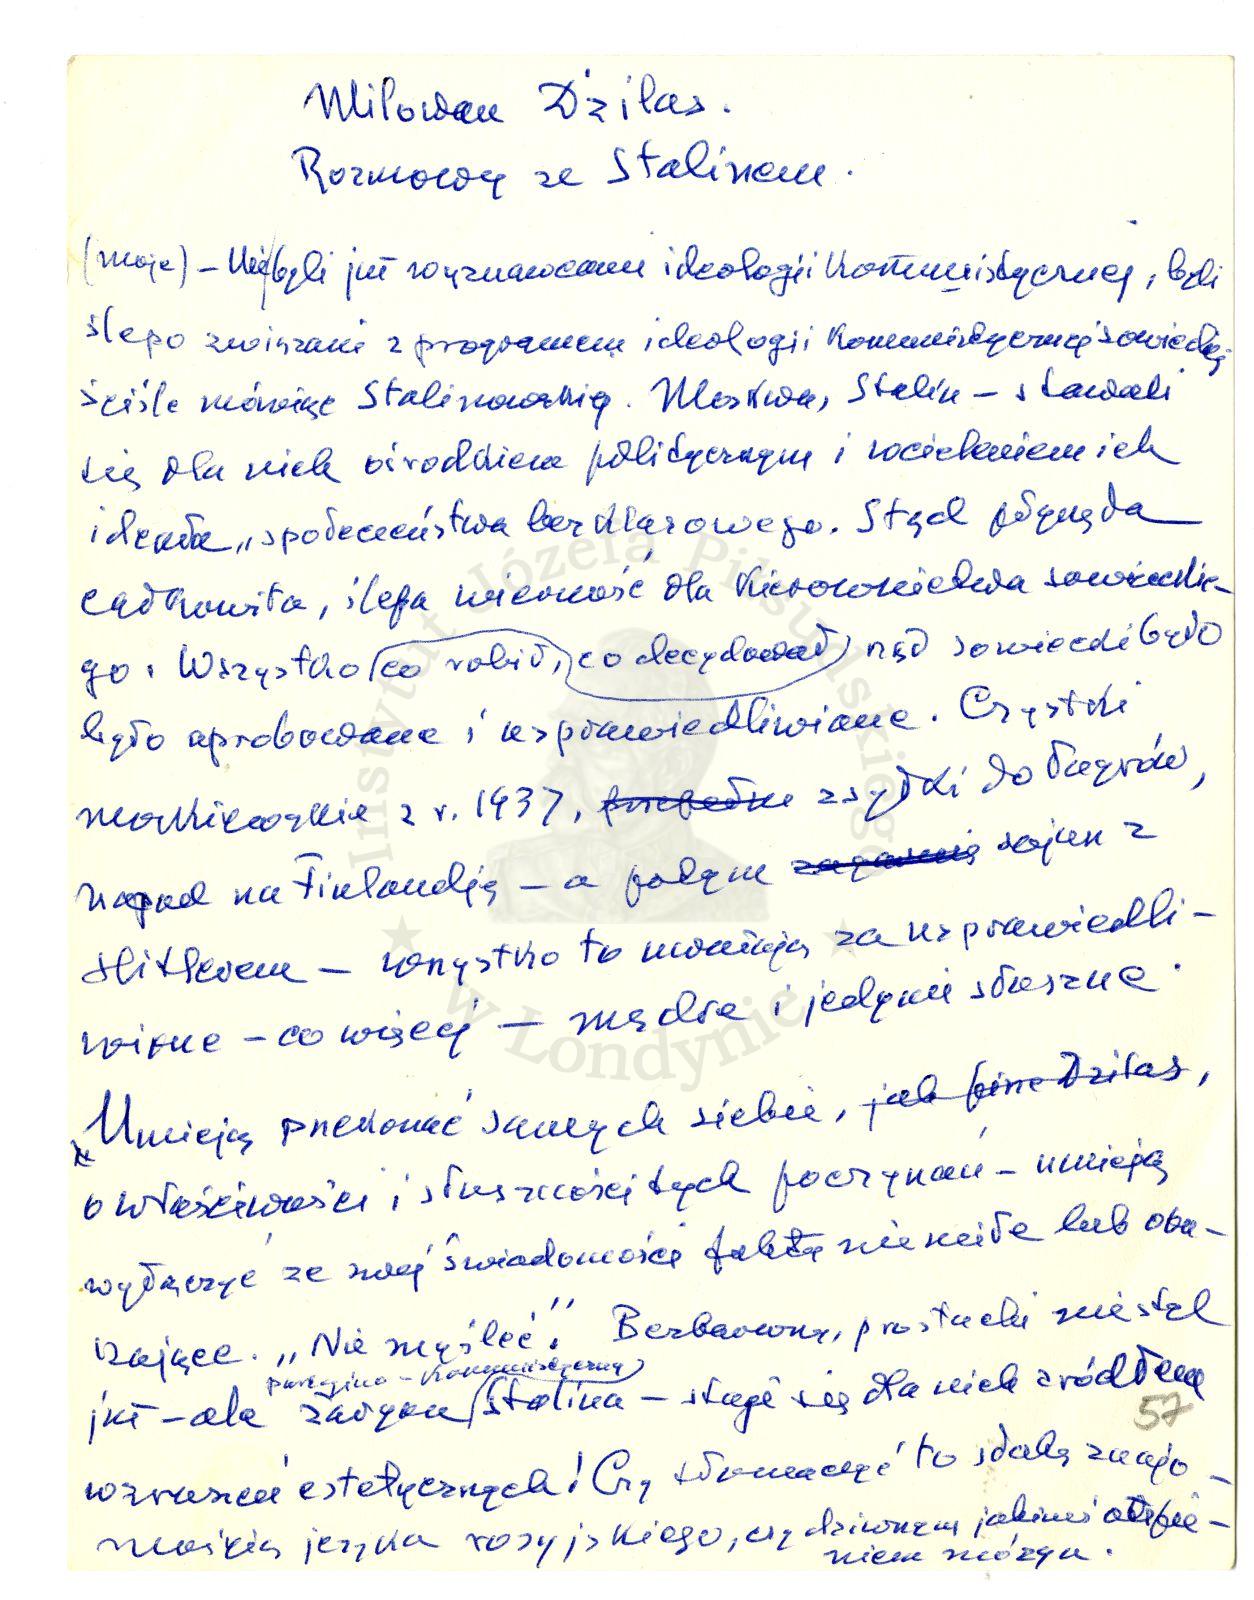 Milowan Dżilas.
Rozmowy ze Stalinem.
(moje) – byli już wyznawcami ideologii komunistycznej, byli
ślepo związani z programem ideologii komunistycznej sowieckiej
ściśle mówiąc Stalinowskiej. Moskwa, Stalin – stawali
się dla nich ośrodkiem politycznym i wcieleniem ich
ideału „społeczeństwa bezklasowego. Stąd płynęła
całkowita, ślepa wierność dla kierownictwa sowieckie-
go. Wszystko co robił, co decydował rząd sowiecki było
było aprobowane i usprawiedliwiane. Czystki
z r. 1937, zsyłki do łagrów,
napad na Finlandję – a potym sojusz z
Hitlerem – wszystko to uważają za usprawiedli-
wione – co więcej – mądre i jedynie słuszne.
„Umieją przekonać samych siebie, jak pisze Dżilas,
o właściwości i słuszności tych poczynań – umieją
wyłączyć ze swej świadomości fakty niemiłe lub
„Nie myśleć”. Bezbarwny, prostacki niestyl
partyjno-komunistyczny
już – ale żargon Stalina – staje się dla nich źródłem
57
wzruszeń estetycznych! Czy tłumaczyć to słabą znajo-
mością języka rosyjskiego, czy dziwnym jakimś otępie-
niem mózgu.
Instytut Józefa Piłsudskiego
w Londynie